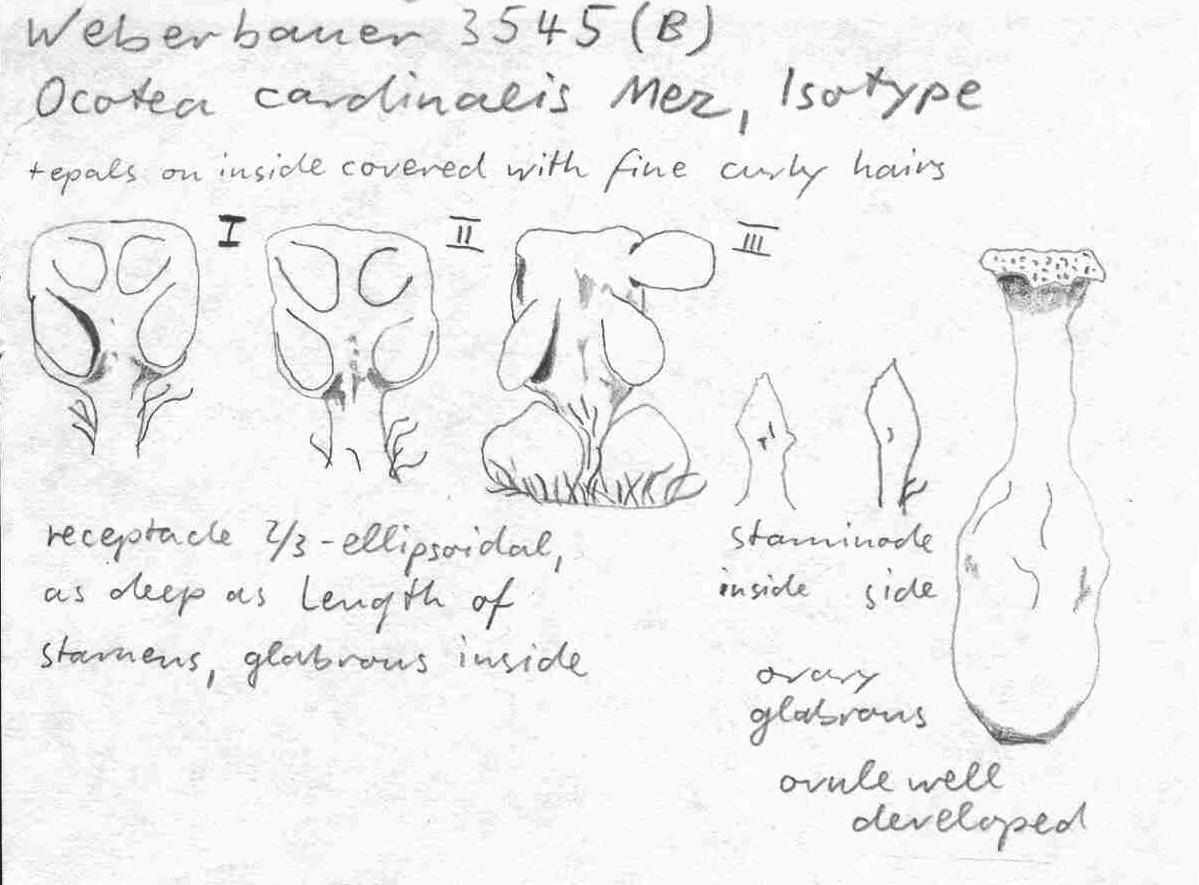 Weberbauer 3545 (B)
Ocotea cardinalis Mez, Isotype
tepals on inside covered with fine curly hairs
I
II
III
receptacle 2/3-ellipsoidal,
as deep as length of
stamens, glabrous inside
staminode
inside side
ovary
glabrous
ovule well
developed